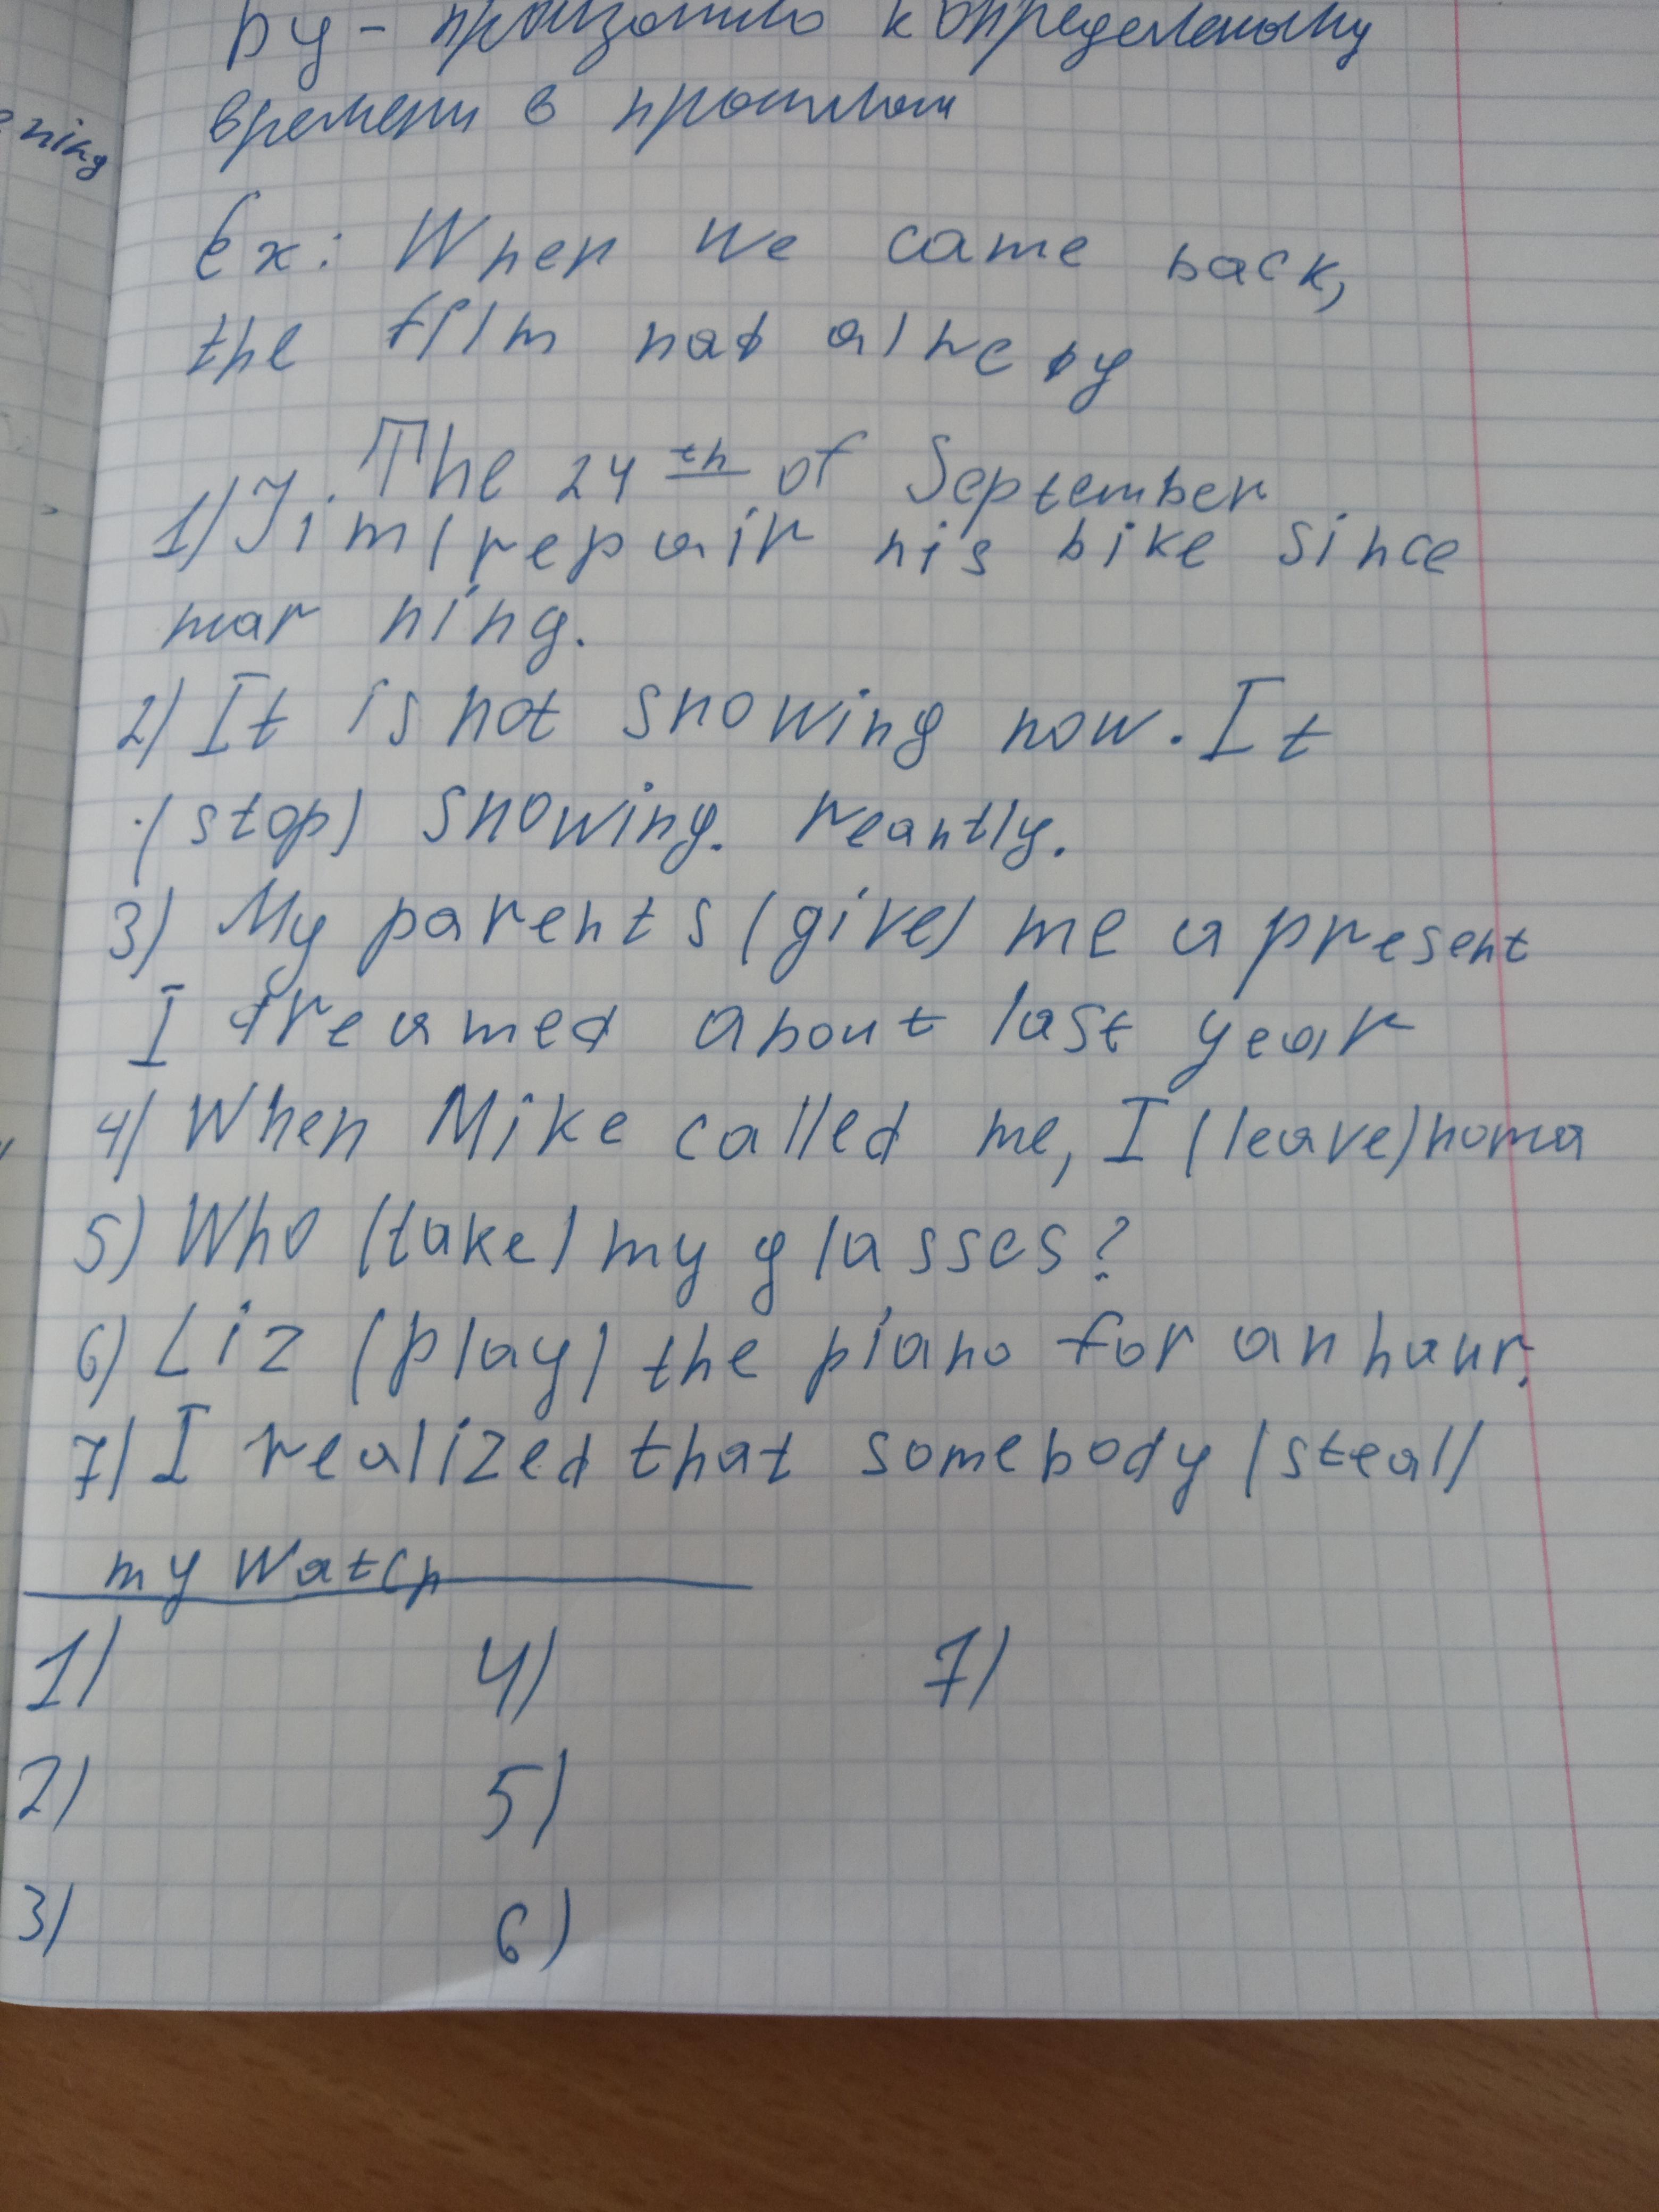 by - произошло к определеному
времени в прошлом
ening
Ex: When we came back,
the film had alredy
The 24th of September
1) Jim (repair his bike since
mar ning.
2) It is not snowing now. It
(stop) snowing. reantly.
3) My parents (give) me a present
I dreamed about last year
4) When Mike called me, I (leave) homa
5) Who (take) my glasses?
6) Liz (play) the piano for an haur.
7) I realized that somebody (steal)
my watch
1) 4) 7)
2) 5)
3) 6)